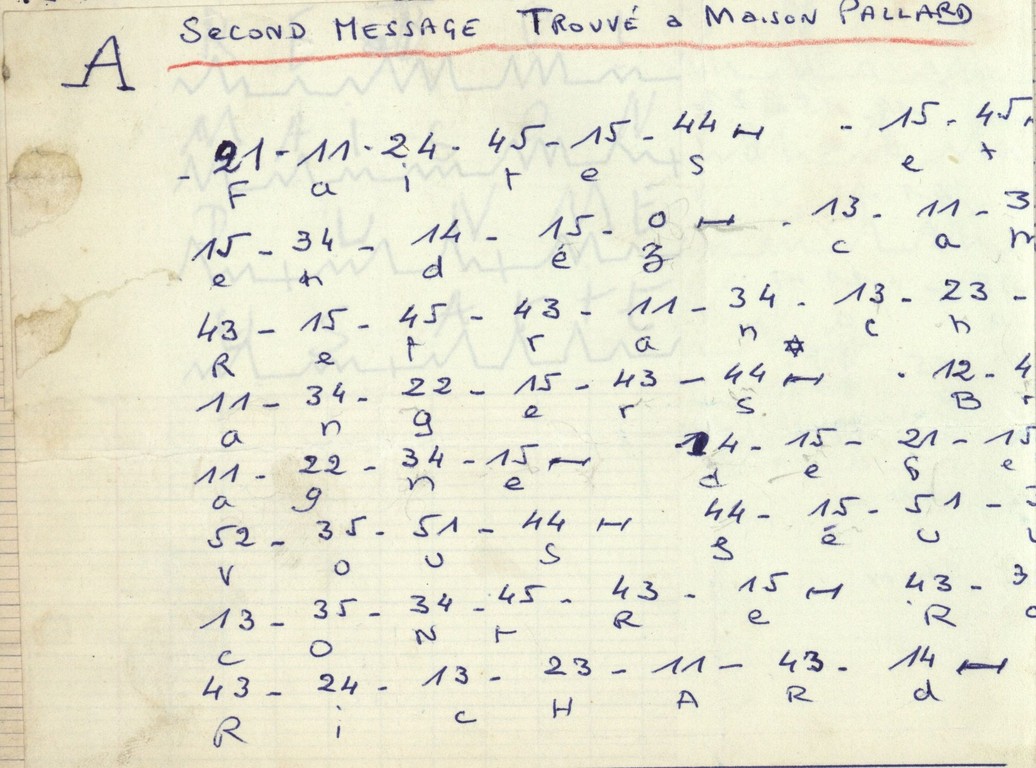 SECOND MESSAGE TROUVÉ a MAISON PALLARD
A
- 21 - 11 - 24 - 45 - 15 - 44 - 15 - 45
F a i t e s e t
15 - 34 - 14 - 15 - 0 - 13 - 11 -
e n d e z c a m
43 - 15 - 45 - 43 - 11 - 34 - 13 - 23 -
R e t r a n c h
11 - 34 - 22 - 15 - 43 - 44 - 12 -
a n g e r s B
11 - 22 - 34 - 15 14 - 15 - 21 - 15
a g n e d e f e
52 - 35 - 51 - 44 44 - 15 - 51 -
v o u s s é u
13 - 35 - 34 - 45 - 43 - 15 43 -
c o N t R e R
43 - 24 - 13 - 23 - 11 - 43 - 14
R i c H A R d